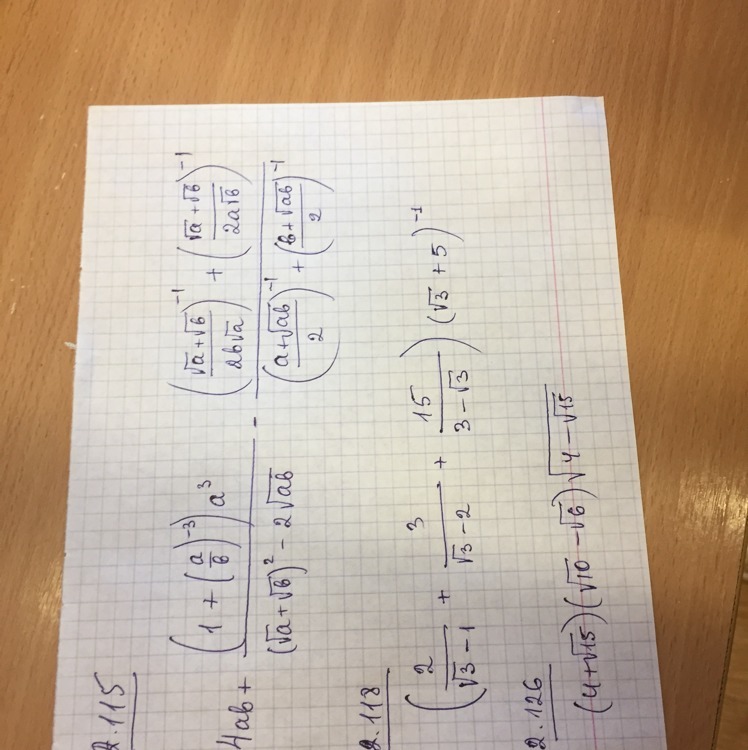 2.115
4ab + ((1 + (a/b)^-3) a^3)/((√a + √b)^2 - 2√ab) - (((√a + √b)/(2b√a))^-1 + ((√a + √b)/(2a√b))^-1)/(((a + √ab)/2)^-1 + ((b + √ab)/2)^-1)
2.118
(2/(√3 - 1) + 3/(√3 - 2) + 15/(3 - √3)) (√3 + 5)^-1
2.126
(4 + √15)(√10 - √6)√(4 - √15)